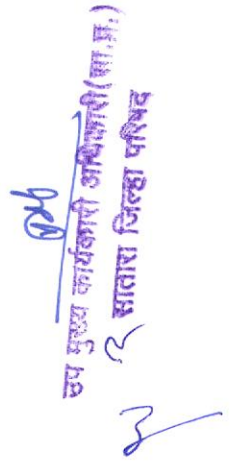 उप मुख्य कार्यकारी अधिकारी(सा.प्र.)
सातारा जिल्हा परिषद